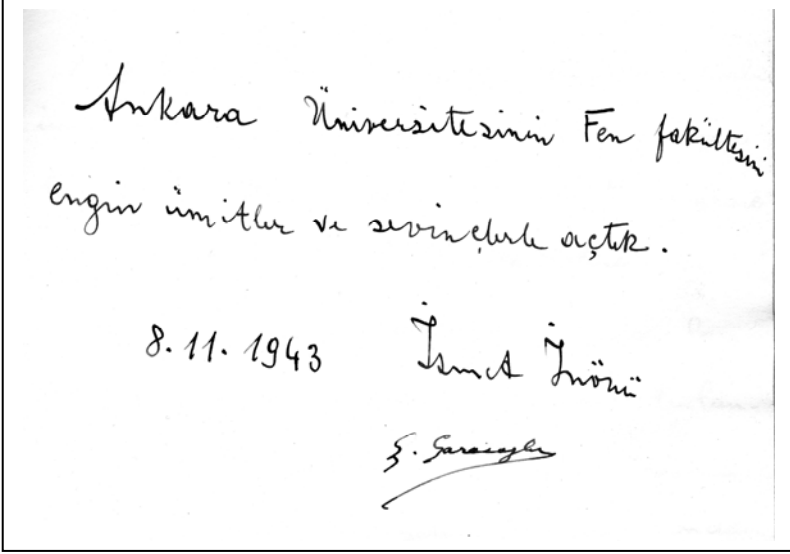 Ankara Üniversitesinin Fen fakültesini
engin ümitler ve sevinçlerle açtık.
8.11.1943 İsmet İnönü
Ş. Saracoğlu